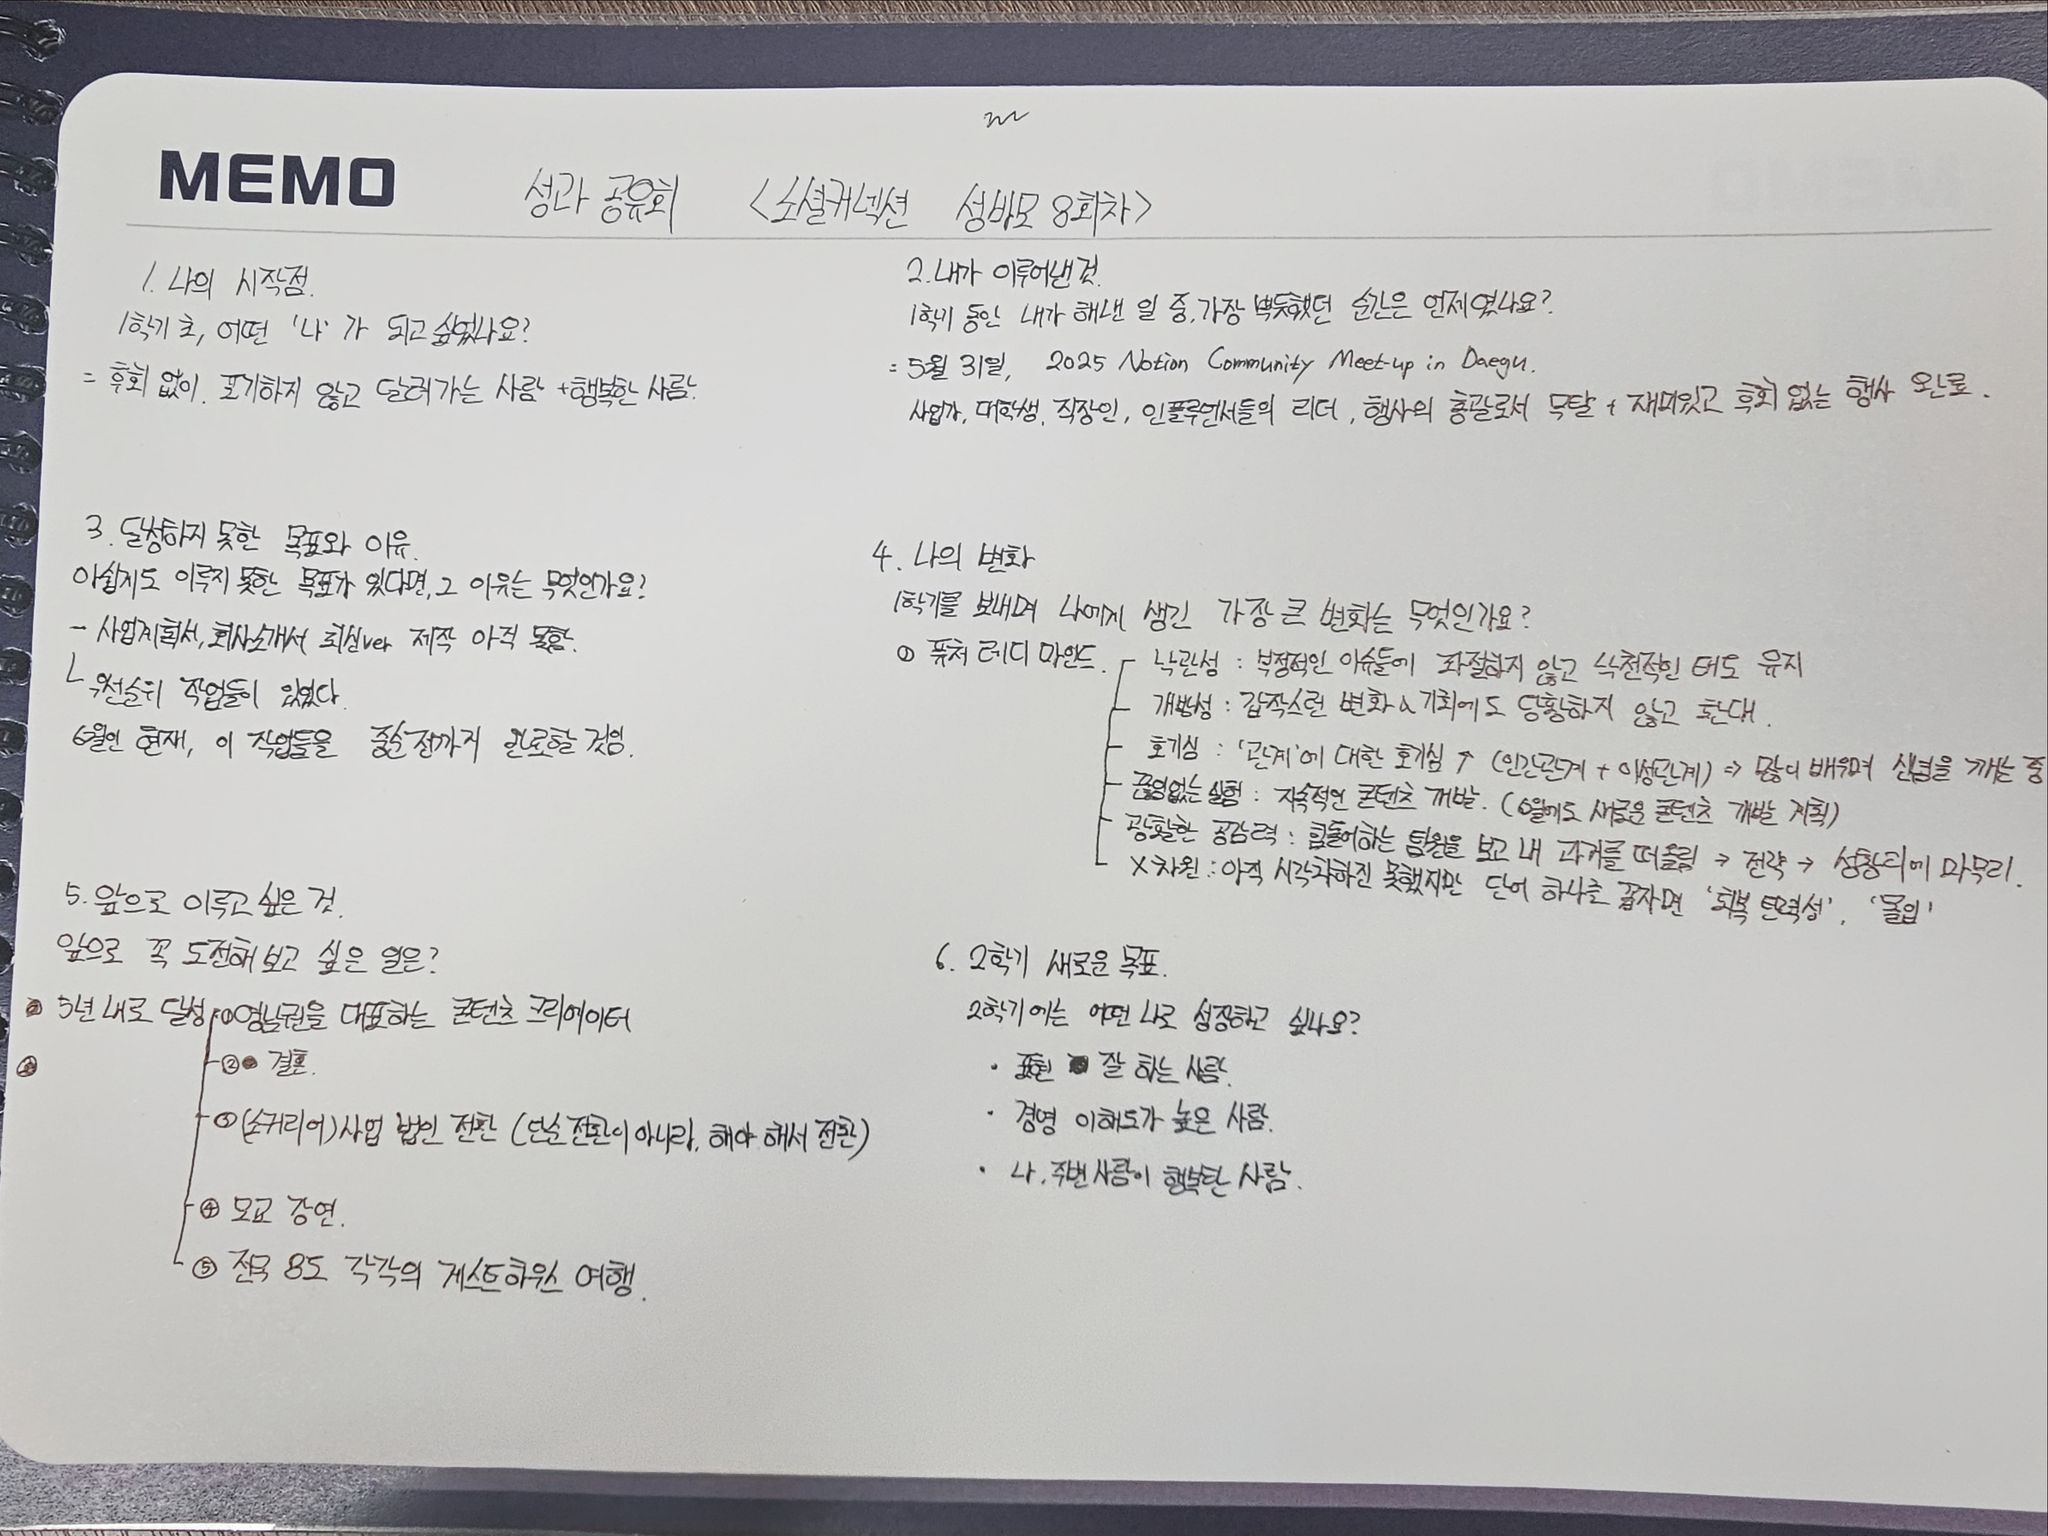 MEMO
성과 공유회 <소셜커넥션 성바모 8회차>
1. 나의 시작점.
1학기 초, 어떤 '나'가 되고 싶었나요?
= 후회 없이. 포기하지 않고 달려가는 사람 + 행복한 사람.
2. 내가 이루어낸 것.
1학기 동안 내가 해낸 일 중, 가장 뿌듯했던 순간은 언제였나요?
= 5월 31일, 2025 Notion Community Meet-up in Daegu.
사업가, 대학생, 직장인, 인플루언서들의 리더, 행사의 총괄로서 목달 + 재미있고 후회 없는 행사 완료.
3. 달성하지 못한 목표와 이유.
아쉽게도 이루지 못한 목표가 있다면, 그 이유는 무엇인가요?
- 사업계획서, 회사소개서 최신ver 제작 아직 못함.
ㄴ 우선순위 작업들이 있었다.
6월인 현재, 이 작업들을 중순 전까지 완료할 것임.
4. 나의 변화
1학기를 보내며 나에게 생긴 가장 큰 변화는 무엇인가요?
① 퓨처 레디 마인드.
낙관성 : 부정적인 이슈들에 좌절하지 않고 낙천적인 태도 유지
개방성 : 갑작스런 변화 & 기회에도 당황하지 않고 환대.
호기심 : '관계'에 대한 호기심 ↑ (인간관계 + 이성관계) ⇒ 많이 배우며 신념을 깨는 중
끊임없는 실험 : 지속적인 콘텐츠 개발. (6월에도 새로운 콘텐츠 개발 계획)
광활한 공감력 : 힘들어하는 팀원을 보고 내 과거를 떠올림 → 전략 → 성황리에 마무리.
X차원 : 아직 시각화하진 못했지만 단어 하나로 꼽자면 '회복 탄력성', '몰입'
5. 앞으로 이루고 싶은 것.
앞으로 꼭 도전해 보고 싶은 일은?
5년 내로 달성 ① 영남권을 대표하는 콘텐츠 크리에이터
② 결혼.
③ (소커리어) 사업 법인 전환 (단순 전환이 아니라, 해야 해서 전환)
④ 모교 강연.
⑤ 전국 8도 각각의 게스트하우스 여행.
6. 2학기 새로운 목표.
2학기에는 어떤 나로 성장하고 싶나요?
· 표현 잘 하는 사람.
· 경영 이해도가 높은 사람.
· 나, 주변사람이 행복한 사람.